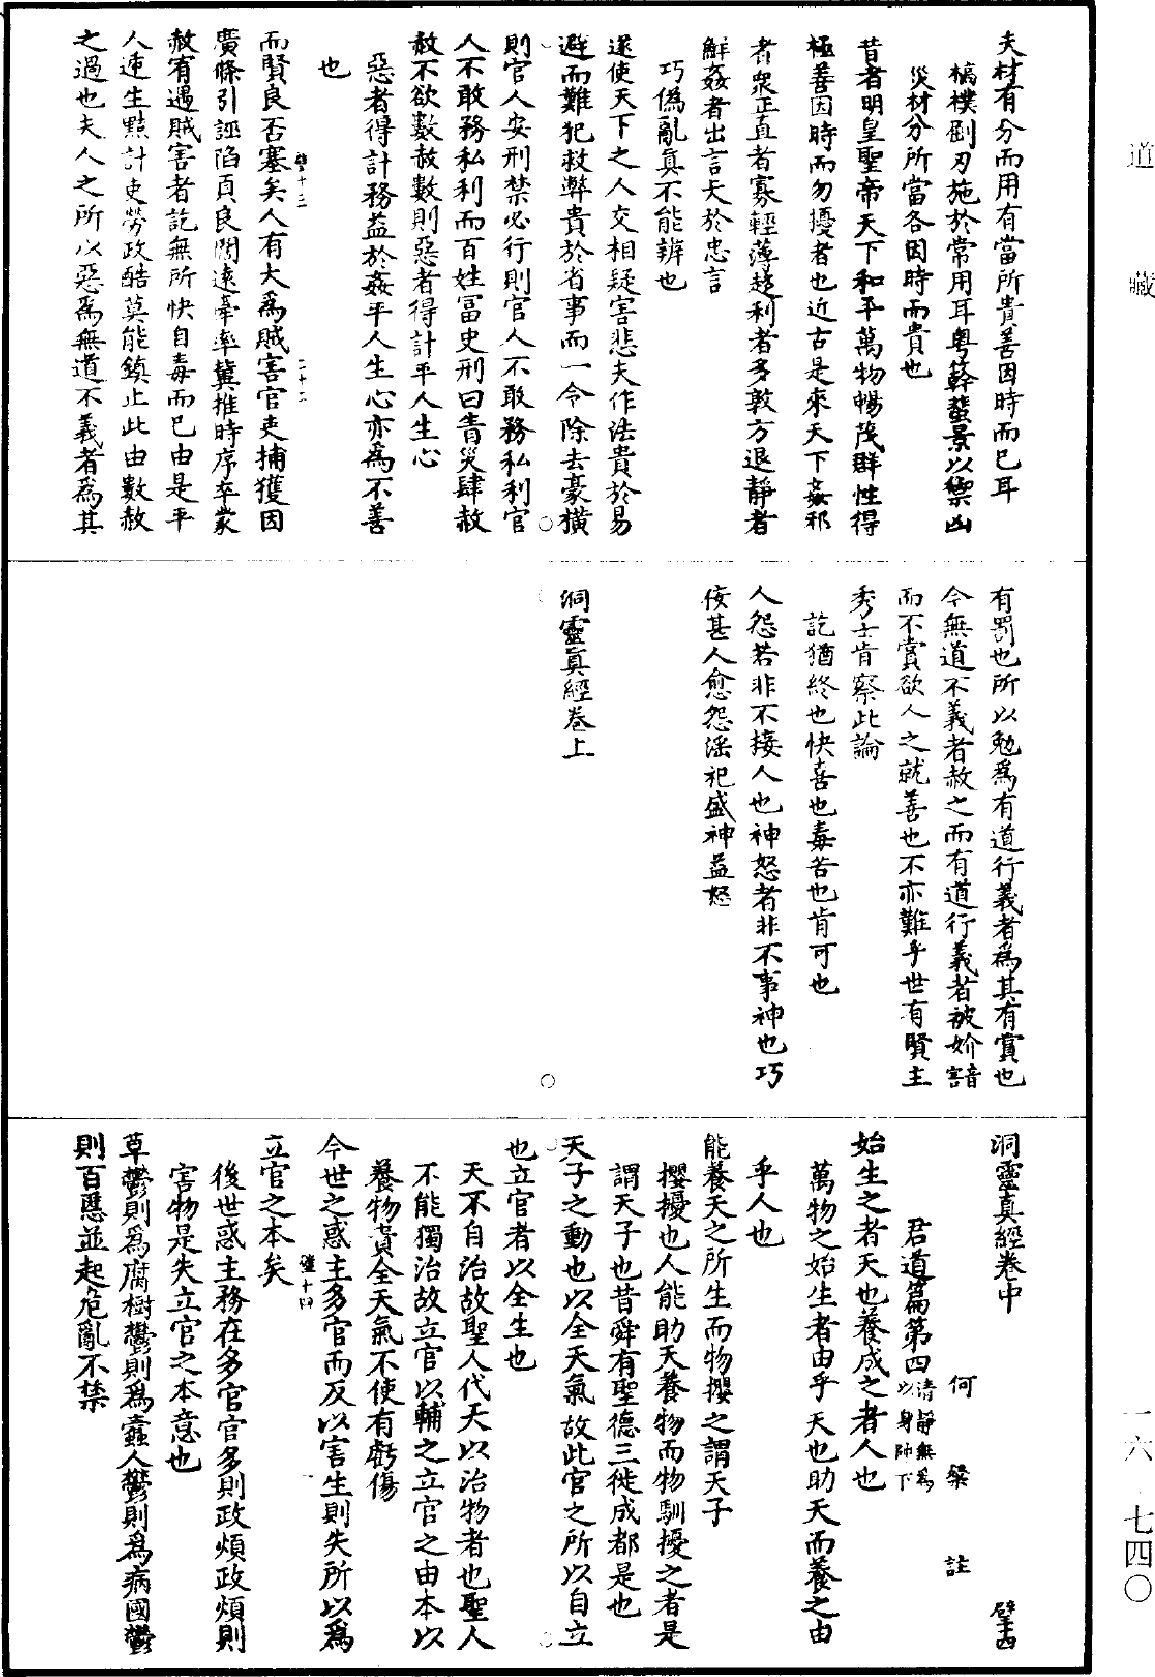 道藏
一六·七四〇
夫材有分而用有當所貴善因時而已耳
槁樸剛刃施於常用耳粤簳蜚景以禦凶
災材分所當各因時而貴也
昔者明皇聖帝天下和平萬物暢茂群性得
極善因時而勿擾者也近古是來天下姦邪
者衆正直者寡輕薄趍利者多敦方退靜者
鮮姦者出言夭於忠言
巧偽亂真不能辨也
遂使天下之人交相疑害悲夫作法貴於易
避而難犯救弊貴於省事而一令除去豪橫
則官人安刑禁必行則官人不敢務私利官
人不敢務私利而百姓冨史刑曰眚災肆赦
赦不欲數赦數則惡者得計平人生心
惡者得計務益於姦平人生心亦為不善
也
而賢良否塞矣人有大為賊害官吏捕獲因
廣條引誣陷貞良闊遠牽率冀推時序卒蒙
赦宥遇賊害者訖無所快自毒而已由是平
人連生黠計吏勞政酷莫能鎮止此由數赦
之過也夫人之所以惡為無道不義者為其
有罰也所以勉為有道行義者為其有賞也
今無道不義者赦之而有道行義者被妎諳
而不賞欲人之就善也不亦難乎世有賢主
秀士肯察此論
訖猶終也快喜也毒苦也肯可也
人怨若非不接人也神怒者非不事神也巧
佞甚人愈怨淫祀盛神益怒
洞靈真經卷上
洞靈真經卷中 壁十四
何粲註
君道篇第四 清靜無為以身帥下
始生之者天也養成之者人也
萬物之始生者由乎天也助天而養之由
乎人也
能養天之所生而物攖之謂天子
攖擾也人能助天養物而物馴擾之者是
謂天子也昔舜有聖德三徙成都是也
天子之動也以全天氣故此官之所以自立
也立官者以全生也
天不自治故聖人代天以治物者也聖人
不能獨治故立官以輔之立官之由本以
養物貴全天氣不使有虧傷
今世之惑主多官而反以害生則失所以為
立官之本矣
後世惑主務在多官官多則政煩政煩則
害物是失立官之本意也
草鬱則為腐樹鬱則為蠹人鬱則為病國鬱
則百慝並起危亂不禁